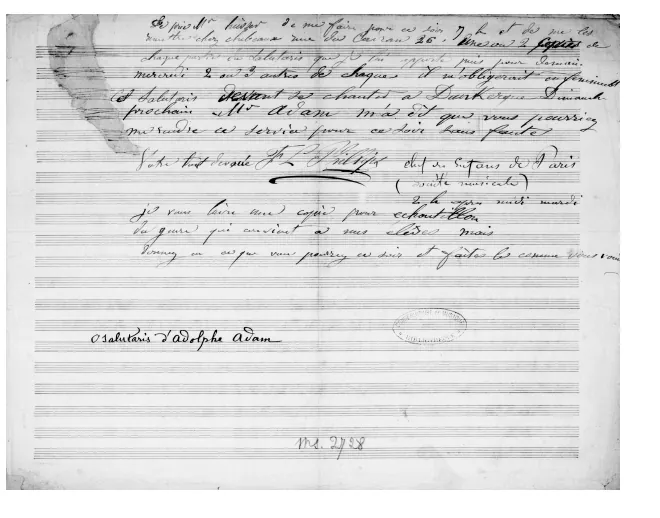 je prie Mr de me faire pour ce soir 7 h et de me les
mettre chez rue du 26. une ou 2 copies de
chaque partie de Salutaris que je puis pour demain
mercredi 2 ou 3 autres de chaque il m'obligerait infiniment
cet Salutaris devant se chanter a Dunkerque Dimanche
prochain Mr adam m'a dit que vous pourriez
me rendre ce service pour ce soir sans faute
Votre tout devoué chef des Enfans de Paris
(société musicale)
2 h après midi mardi
je vous laisse une copie pour echantillon
du genre qui convient a mes elèves mais
donnez en ce que vous pourrez ce soir et faites les comme vous
O salutaris d'adolphe adam
CONSERVATOIRE DE MUSIQUE
BIBLIOTHÈQUE
ms. 2728